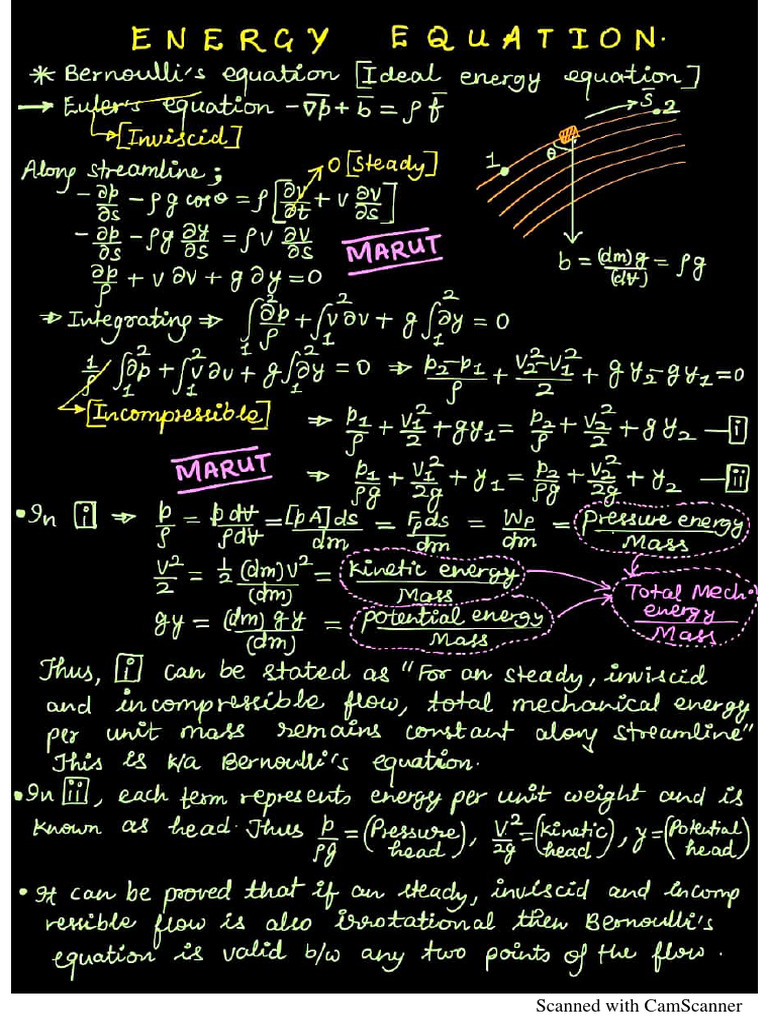 ENERGY EQUATION.
* Bernoulli's equation [Ideal energy equation]
→ Euler's equation -∇p̄ + b̄ = ρ f̄
↳ [Inviscid]
s̄
.2
1
θ
Along streamline; → 0 [Steady]
-∂p/∂s - ρg cosθ = ρ[∂v/∂t + v ∂v/∂s]
-∂p/∂s - ρg ∂y/∂s = ρv ∂v/∂s
MARUT
b = (dm)g/(dV) = ρg
∂p/ρ + v∂v + g∂y = 0
⇒ Integrating ⇒ ∫₁² ∂p/ρ + ∫₁² v∂v + g∫₁² ∂y = 0
1/ρ ∫₁² ∂p + ∫₁² v∂v + g∫₁² ∂y = 0 ⇒ p₂-p₁/ρ + v₂²-v₁²/2 + gy₂-gy₁ = 0
↳ [Incompressible]
⇒ p₁/ρ + v₁²/2 + gy₁ = p₂/ρ + v₂²/2 + gy₂ — i
MARUT
⇒ p₁/ρg + v₁²/2g + y₁ = p₂/ρg + v₂²/2g + y₂ — ii
• In i ⇒ p/ρ = p dV/ρdV = [pA]ds/dm = Fₚds/dm = Wₚ/dm = Pressure energy/Mass
v²/2 = 1/2 (dm)v²/(dm) = Kinetic energy/Mass
Total Mech. energy/Mass
gy = (dm)gy/(dm) = potential energy/Mass
Thus, i can be stated as "For an steady, inviscid
and incompressible flow, total mechanical energy
per unit mass remains constant along streamline"
This is k/a Bernoulli's equation.
• In ii, each term represents energy per unit weight and is
known as head. Thus p/ρg = (Pressure head), v²/2g = (kinetic head), y = (Potential head)
• It can be proved that if an steady, inviscid and incomp
ressible flow is also irrotational then Bernoulli's
equation is valid b/w any two points of the flow.
Scanned with CamScanner